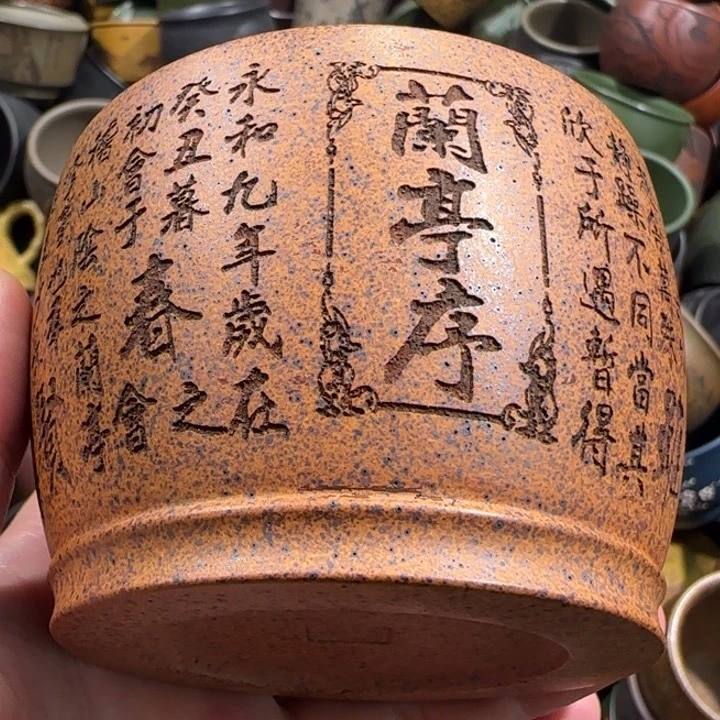 躁不同當其
欣于所遇暫得
蘭亭序
永和九年歲在
癸丑暮春之
初會于會
稽山陰之蘭亭